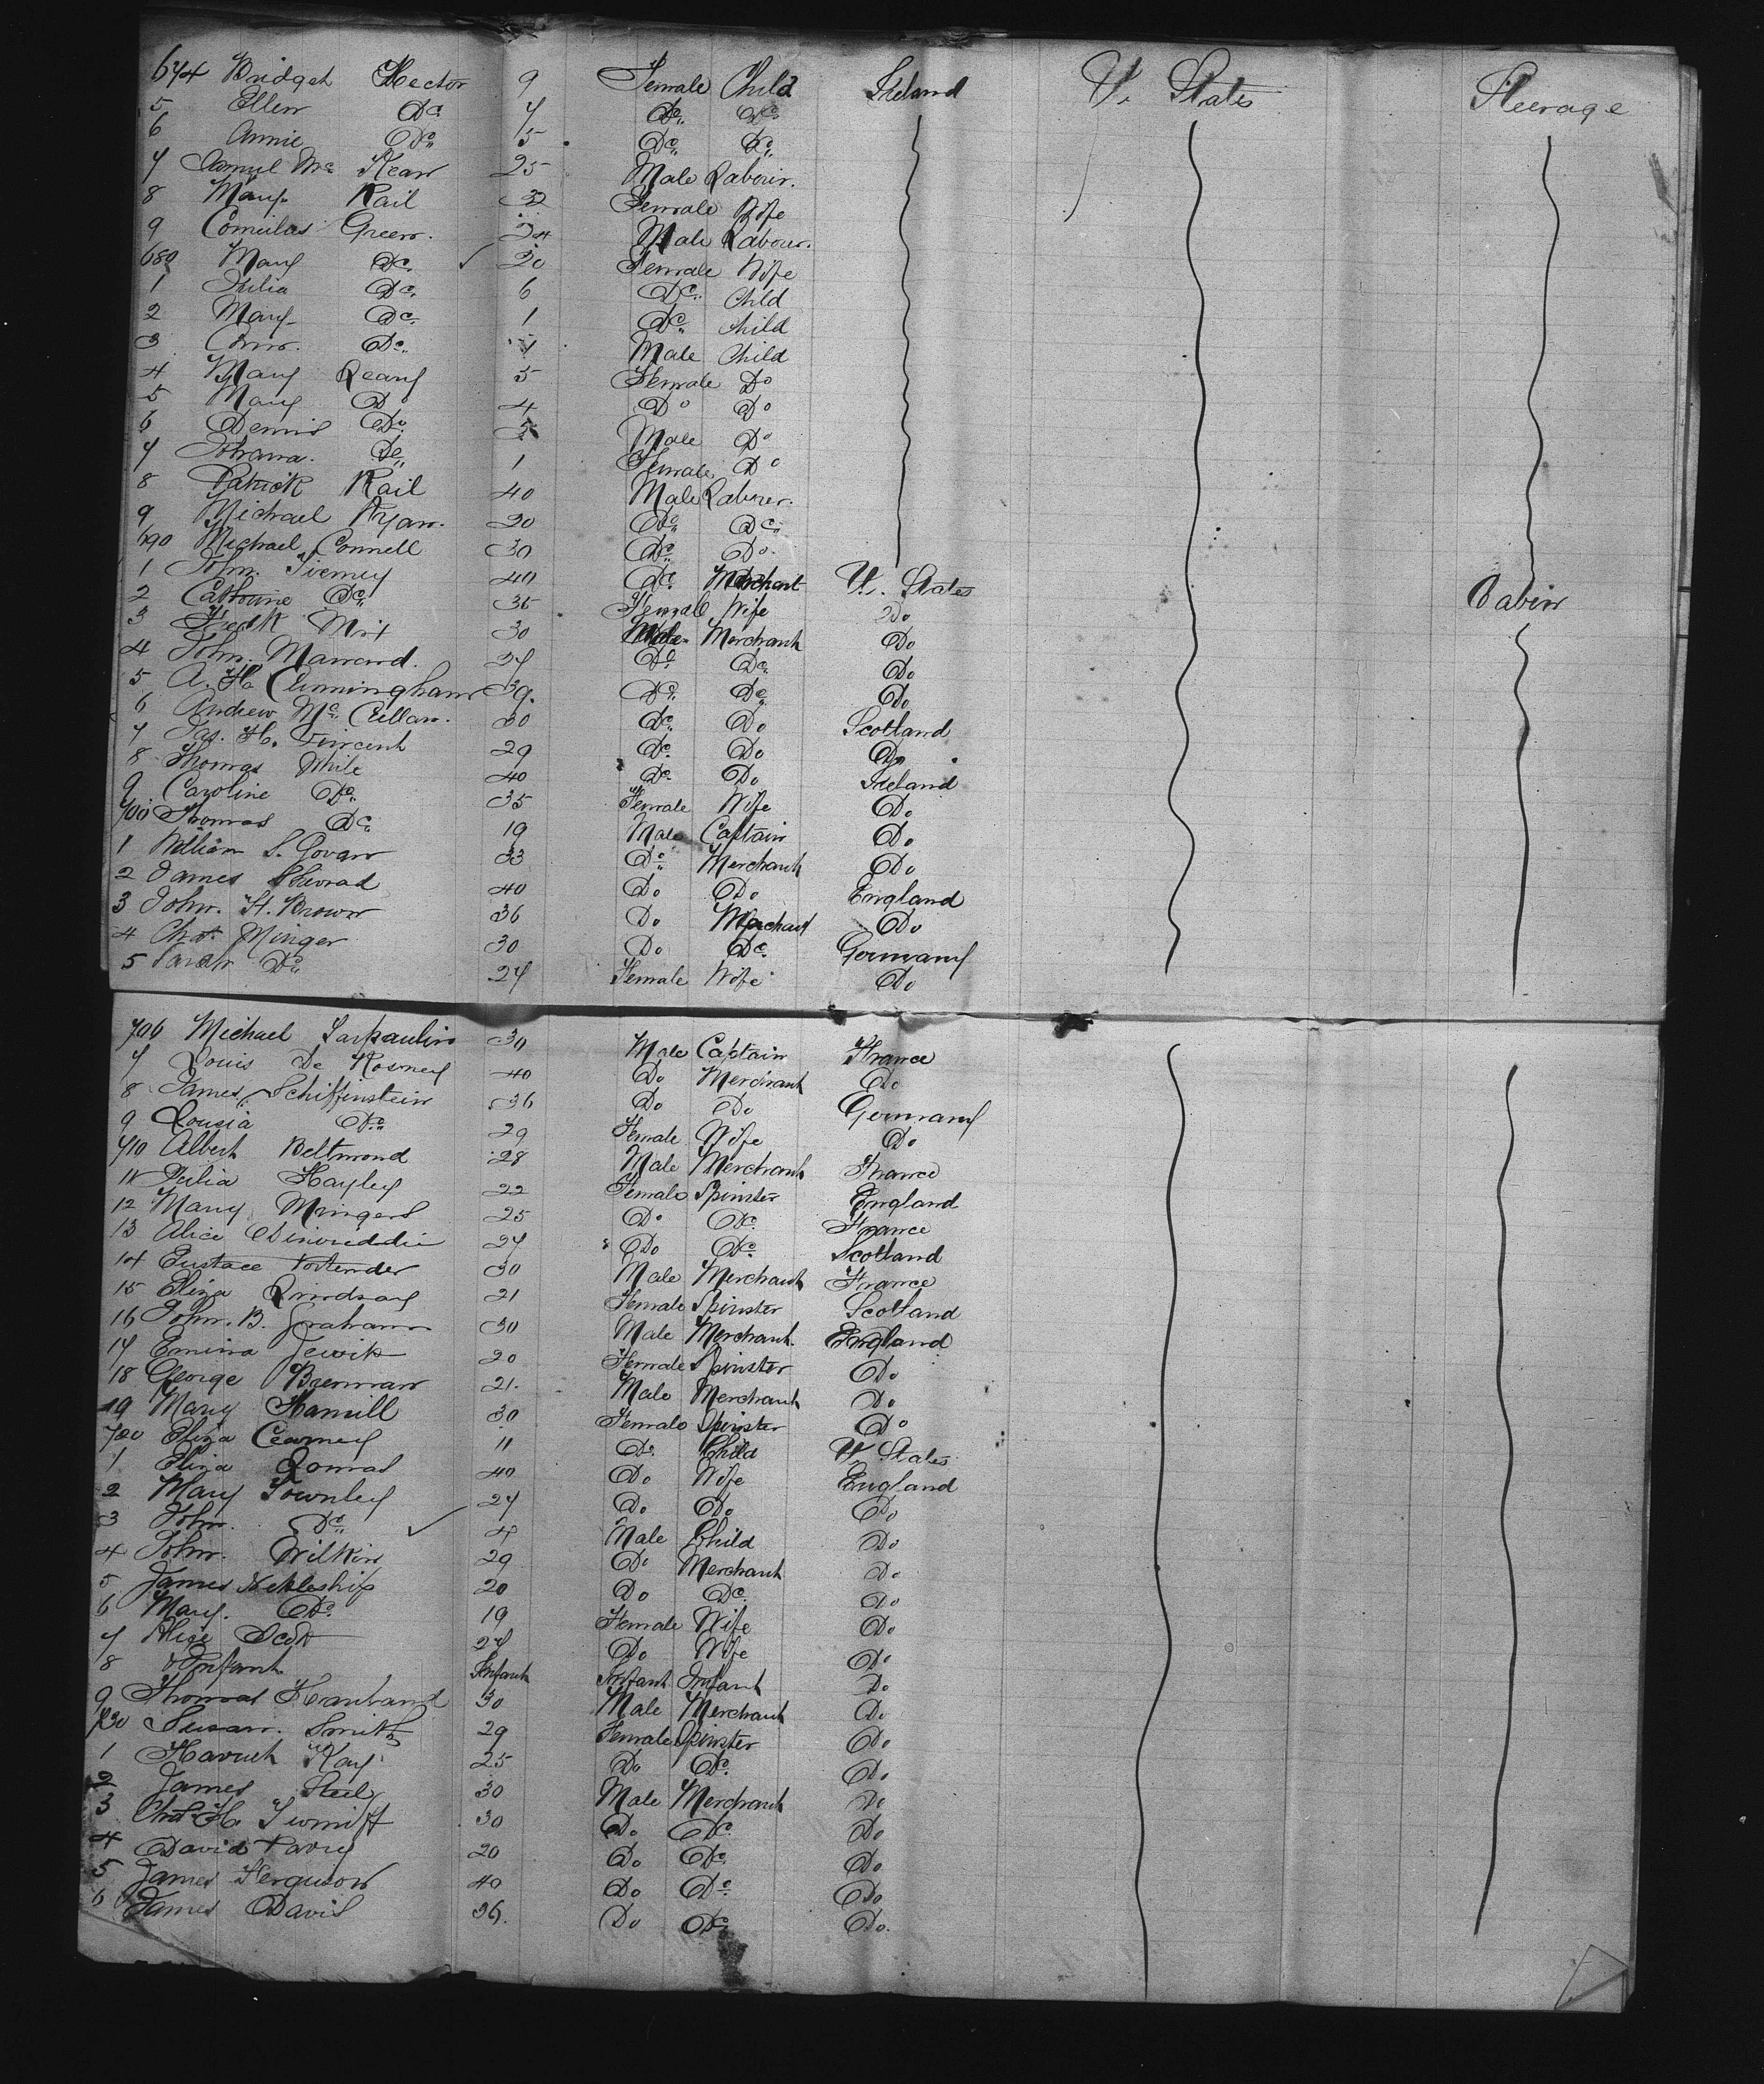 674 Bridget Hector 9 Female Child Ireland U. States Steerage
5 Ellen Do 7 Do Do
6 Annie Do 5 Do Do
7 Samul Mc Kean 25 Male Labour.
8 Mary Kail 32 Female Wife
9 Cornulas Green. 24 Male Labour.
680 Mary Do 20 Female Wife
1 Julia Do 6 Do Child
2 Mary Do 1 Do Child
3 Do Male Child
4 Mary Leary 5 Female Do
5 Mary Do 4 Do Do
6 Dennis Do Male Do
7 Johana. Do 1 Female Do
8 Patrick Kail 40 Male Labourer.
9 Michael Ryan. 20 Do Do
690 Michael Connell 30 Do Do
1 John Tierney 40 Do Merchant U. States Cabin
2 Cathrine Do 35 Female Wife Do
3 Fredk 30 Male Merchant Do
4 John 27 Do Do Do
5 A. H. Cunningham 39. Do Do Do
6 Andrew Mc Cullan. 30 Do Do Scotland
7 Jas. H. Vincent 29 Do Do Do
8 Thomas White 40 Do Do Ireland
9 Caroline Do 35 Female Wife Do
700 Thomas Do 19 Male Captain Do
1 William S. Govan 33 Do Merchant Do
2 James 40 Do Do England
3 John. H. Brown 36 Do Merchant Do
4 Chas. Minger 30 Do Do Germany
5 Sarah Do 27 Female Wife Do
706 Michael 30 Male Captain France
7 Louis De Rosney 40 Do Merchant Do
8 James Schiffinstein 36 Do Do Germany
9 Lousia Do 29 Female Wife Do
710 Albert Beltmond 28 Male Merchant France
11 Julia Hayley 22 Female Spinster England
12 Mary Mingers 25 Do Do France
13 Alice Dinwiddie 27 Do Do Scotland
14 Eustace 30 Male Merchant France
15 Eliza Lindsay 21 Female Spinster Scotland
16 John. B. Graham 30 Male Merchant. England
17 Emma 20 Female Spinster Do
18 George Brennan 21. Male Merchant Do
19 Mary Hamill 30 Female Spinster Do
720 Eliza Cearney 11 Do Child U. States
1 Eliza Lomas 40 Do Wife England
2 Mary Townley 27 Do Do Do
3 John. Do 4 Male Child Do
4 John. Wilkin 29 Do Merchant Do
5 James Nettleship 20 Do Do Do
6 Mary. Do 19 Female Wife Do
7 Alice Scott 27 Do Wife Do
8 & Infant Infant Infant Infant Do
9 Thomas 30 Male Merchant Do
730 Susan. Smith 29 Female Spinster Do
1 Kay 25 Do Do Do
2 James 30 Male Merchant Do
3 Chas. H. 30 Do Do Do
4 David Parry 20 Do Do Do
5 James Ferguson 40 Do Do Do
6 James Davis 36. Do Do Do.